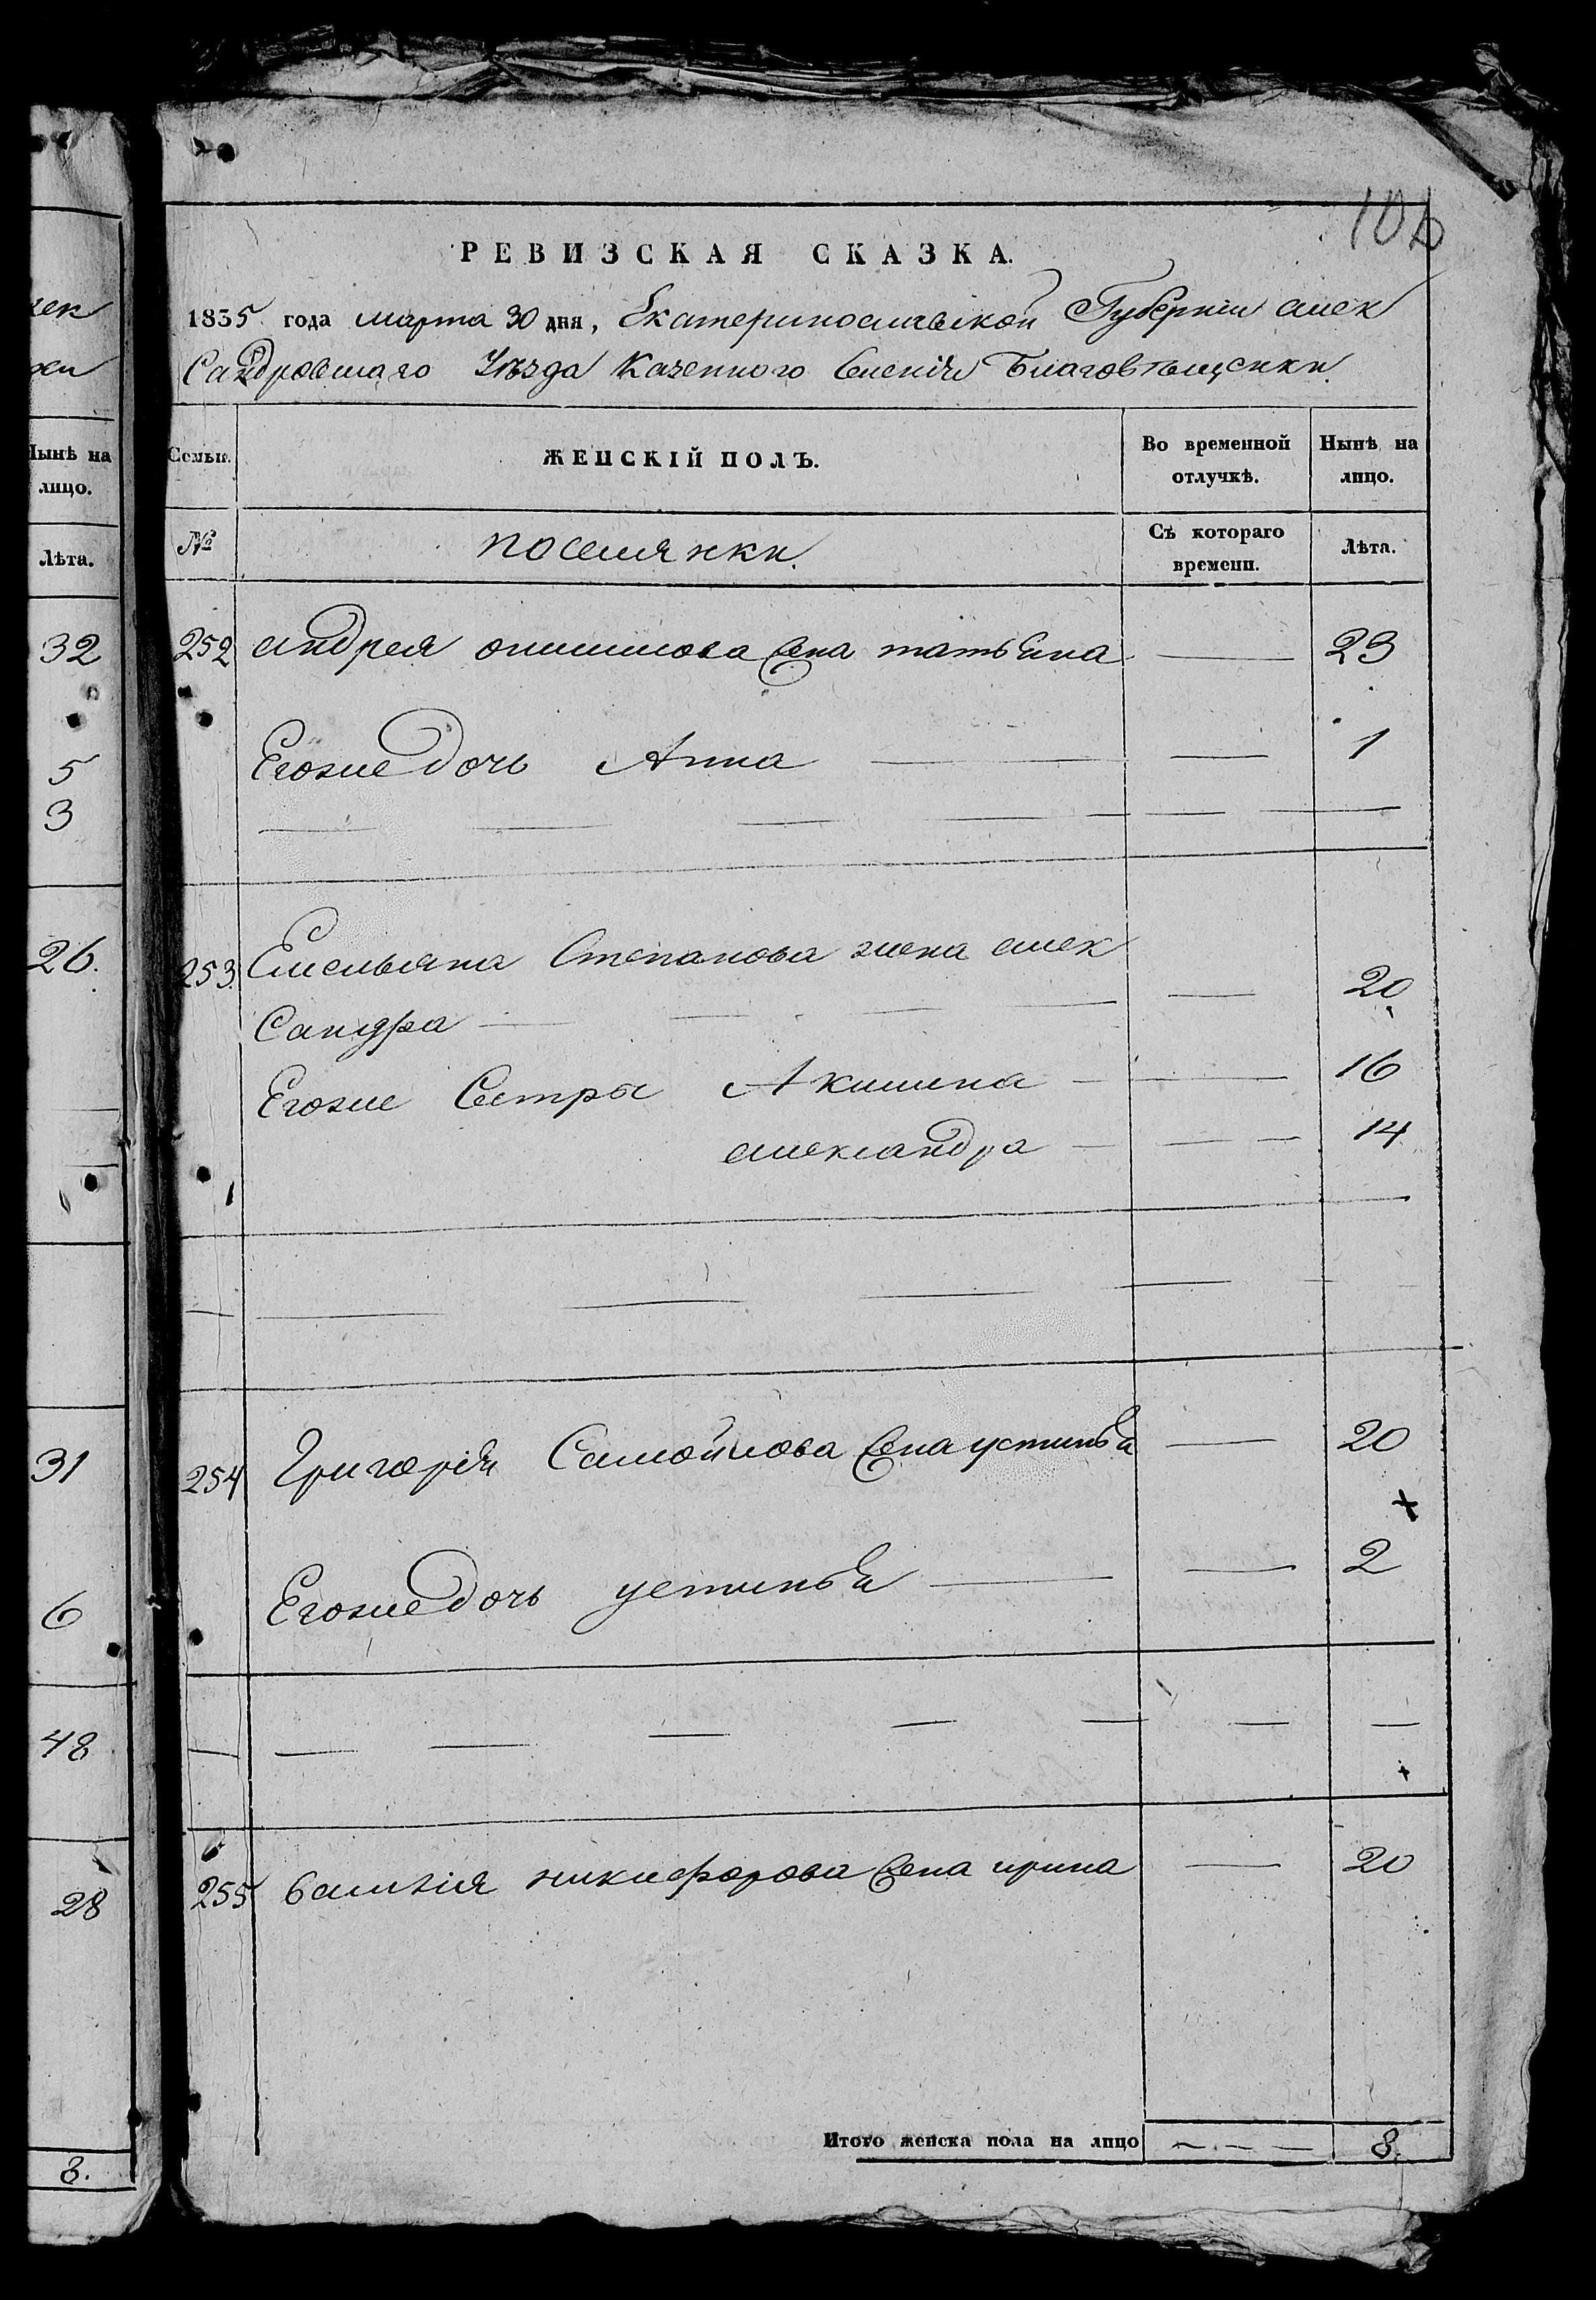 106
РЕВИЗСКАЯ СКАЗКА.
1835 года марта 30 дня, Екатеринославской Губернии алек
Сандровскаго Уѣзда Казенного Селенія Благовѣщенки.
Семьи. ЖЕНСКІЙ ПОЛЪ. Во временной отлучкѣ. Нынѣ на лицо.
№ поселянки. Съ котораго времени. Лѣта.
252 андрея жена татьяна — 23
Егоже дочь Анна — 1
253. Емельяна Степанова жена алек
Сандра — 20.
Егоже Сестры Акилина — 16
александра — 14
254 Григорія Самойлова жена устинья — 20
Егоже дочь устинья — 2
255 василія никифорова жена ирина — 20
Итого женска пола на лицо — 8.
Нынѣ на
лицо.
Лѣта.
32
5
3
26.
31
6
48
28
8.